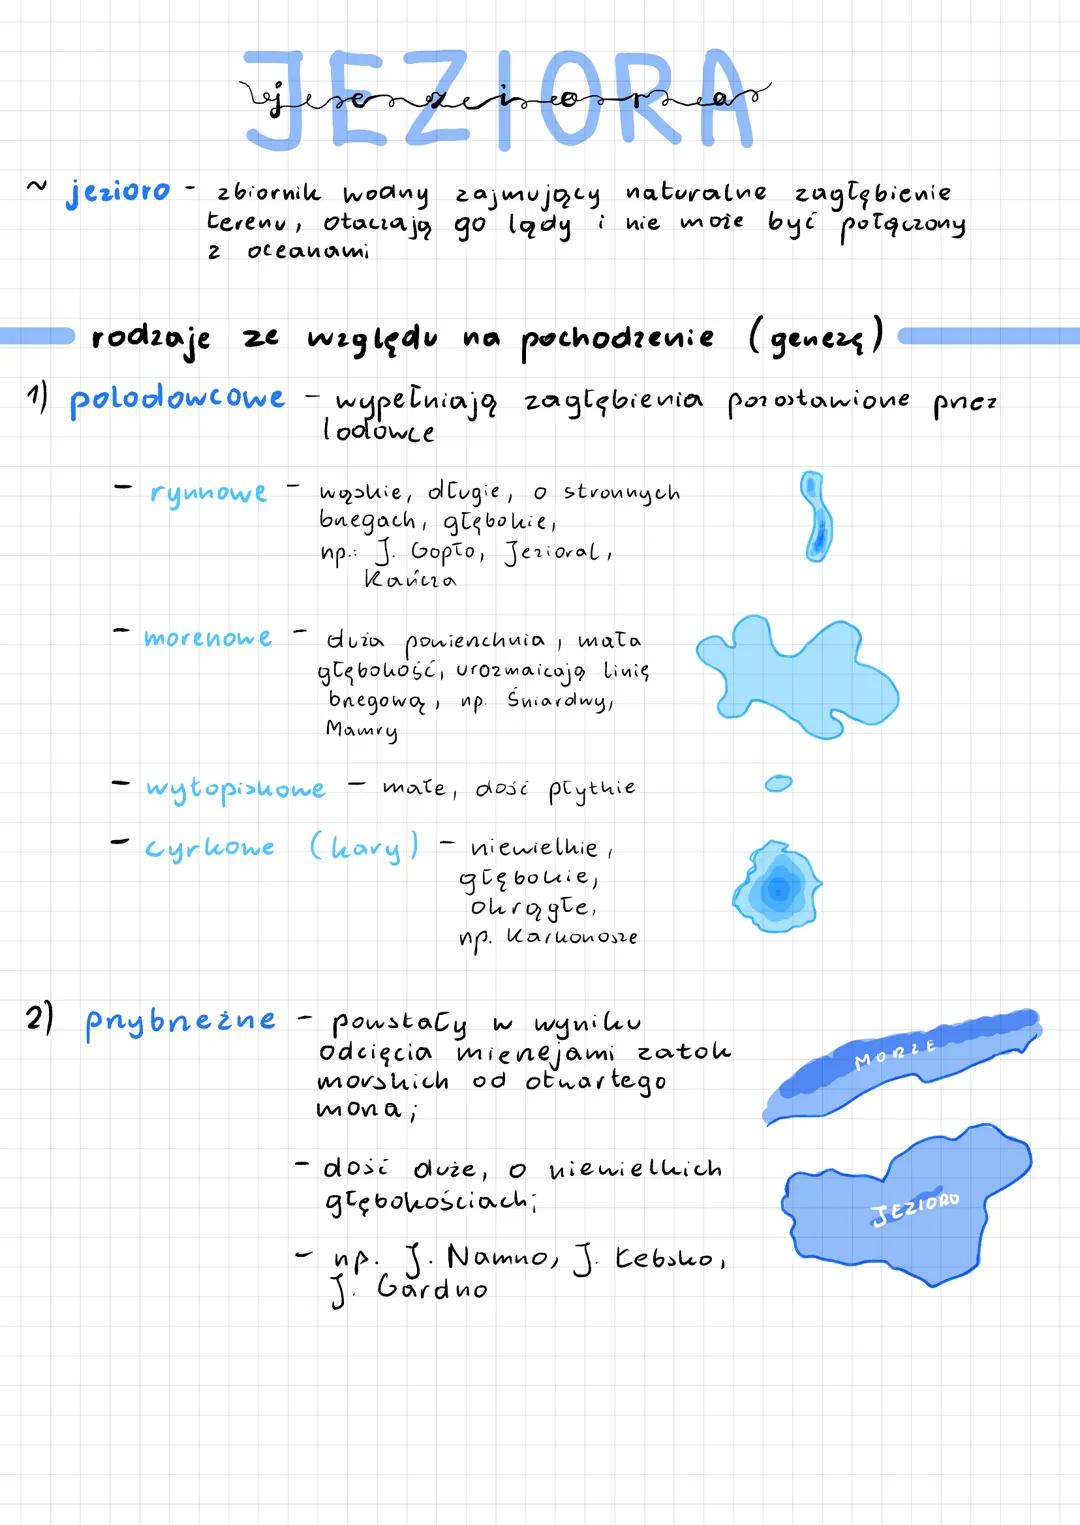 JEZIORA
jeziora
~ jezioro - zbiornik wodny zajmujący naturalne zagłębienie
terenu, otaczają go lądy i nie może być połączony
z oceanami
rodzaje ze względu na pochodzenie (genezę)
1) polodowcowe - wypełniają zagłębienia pozostawione przez
lodowce
- rynnowe - wąskie, długie, o stromych
brzegach, głębokie,
np.: J. Gopło, Jeziorak,
Hańcza
- morenowe - duża powierzchnia, mała
głębokość, urozmaicają linię
brzegową, np. Śniardwy,
Mamry
- wytopiskowe - małe, dość płytkie
- cyrkowe (kary) - niewielkie,
głębokie,
okrągłe,
np. Karkonosze
2) przybrzeżne - powstały w wyniku
odcięcia mierzejami zatok
morskich od otwartego
morza;
MORZE
- dość duże, o niewielkich
głębokościach;
JEZIORO
- np. J. Jamno, J. Łebsko,
J. Gardno